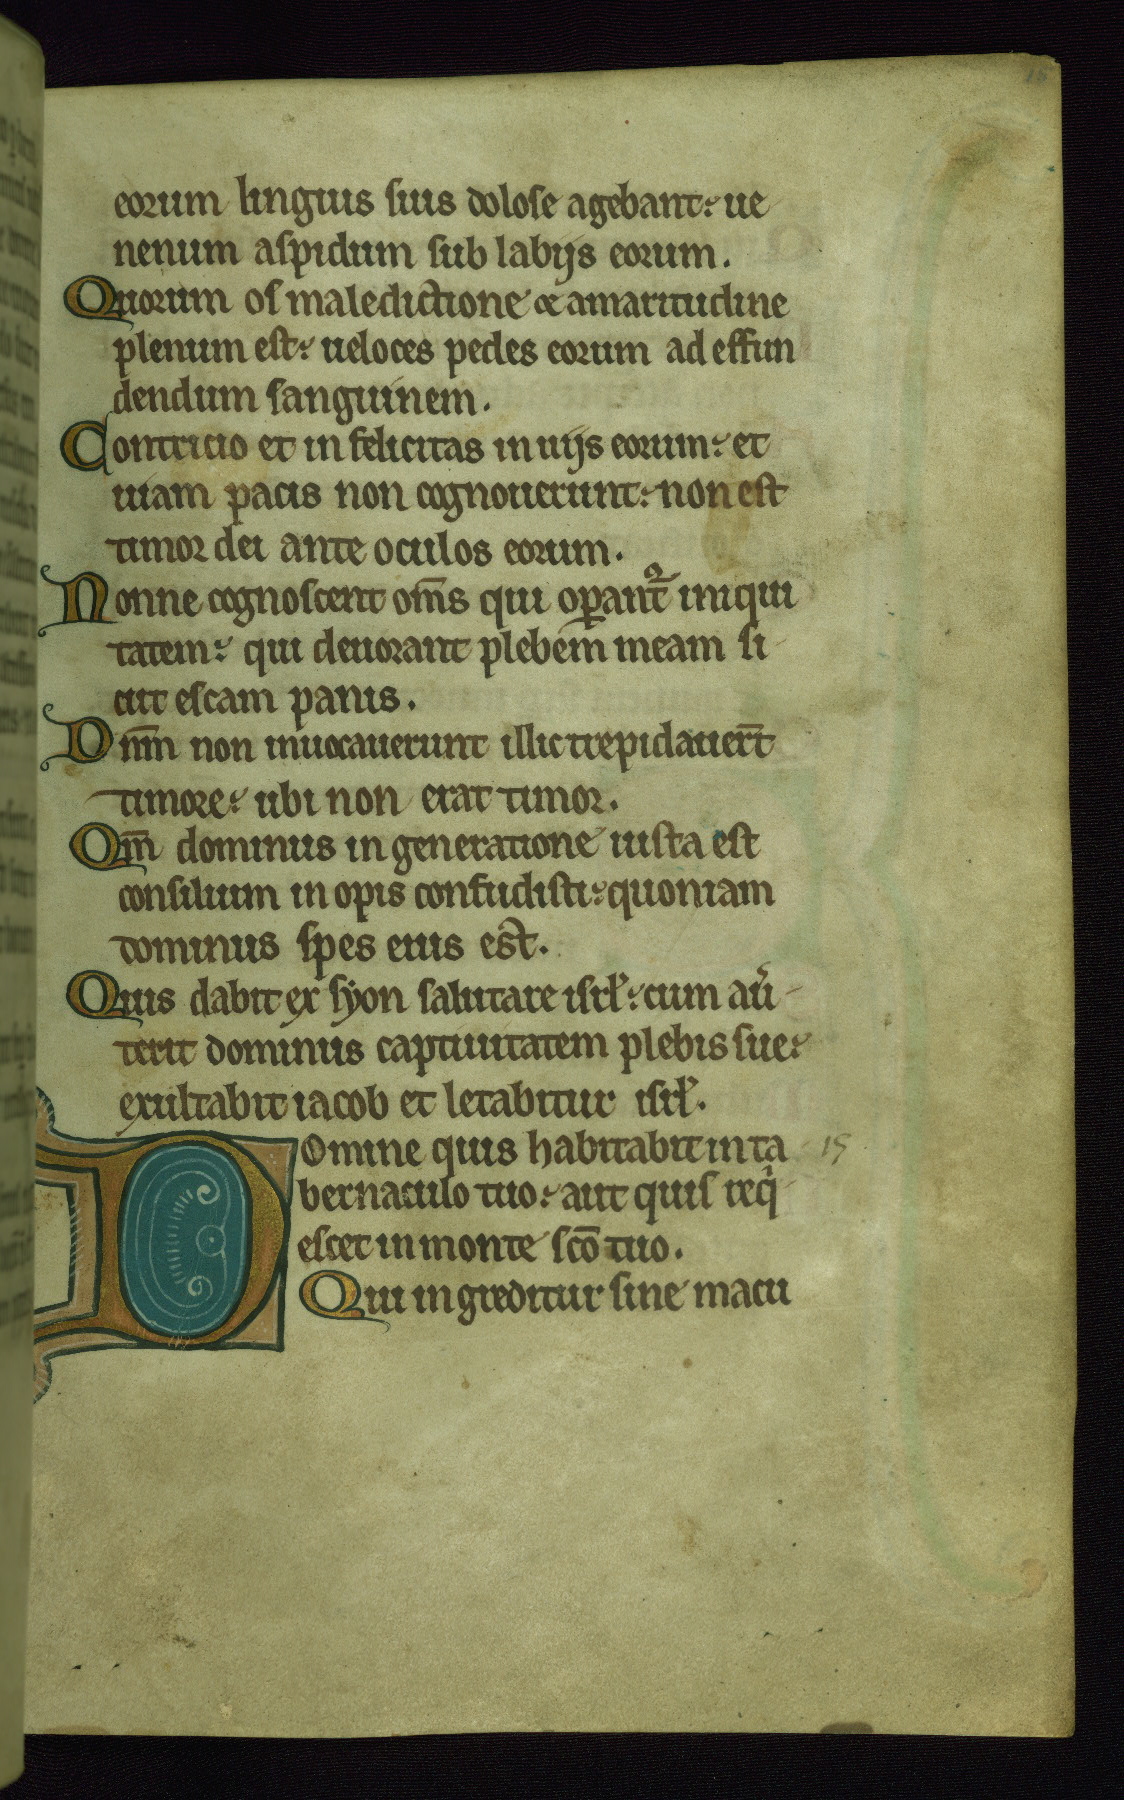 eorum linguis suis dolose agebant: ue
nenum aspidum sub labijs eorum.
Quorum os maledictione & amaritudine
plenum est: ueloces pedes eorum ad effun
dendum sanguinem.
Contricio et in felicitas in uijs eorum: et
uiam pacis non cognouerunt: non est
timor dei ante oculos eorum.
Nonne cognoscent om̄s qui oꝑant᷑ iniqui
tatem: qui deuorant plebem meam si
cut escam panis.
Dn̄m non inuocauerunt illic trepidauer̄t
timore: ubi non erat timor.
Qm̄ dominus in generatione iusta est
consilium inopis confudisti: quoniam
dominus spes eius est.
Quis dabit ex syon salutare isrl̓: cum au̓
terit dominus captiuitatem plebis sue:
exultabit iacob et letabitur isrl̓.
Domine quis habitabit in ta 15
bernaculo tuo: aut quis req̓
escet in monte sc̄o tuo.
Qui ingreditur sine macu